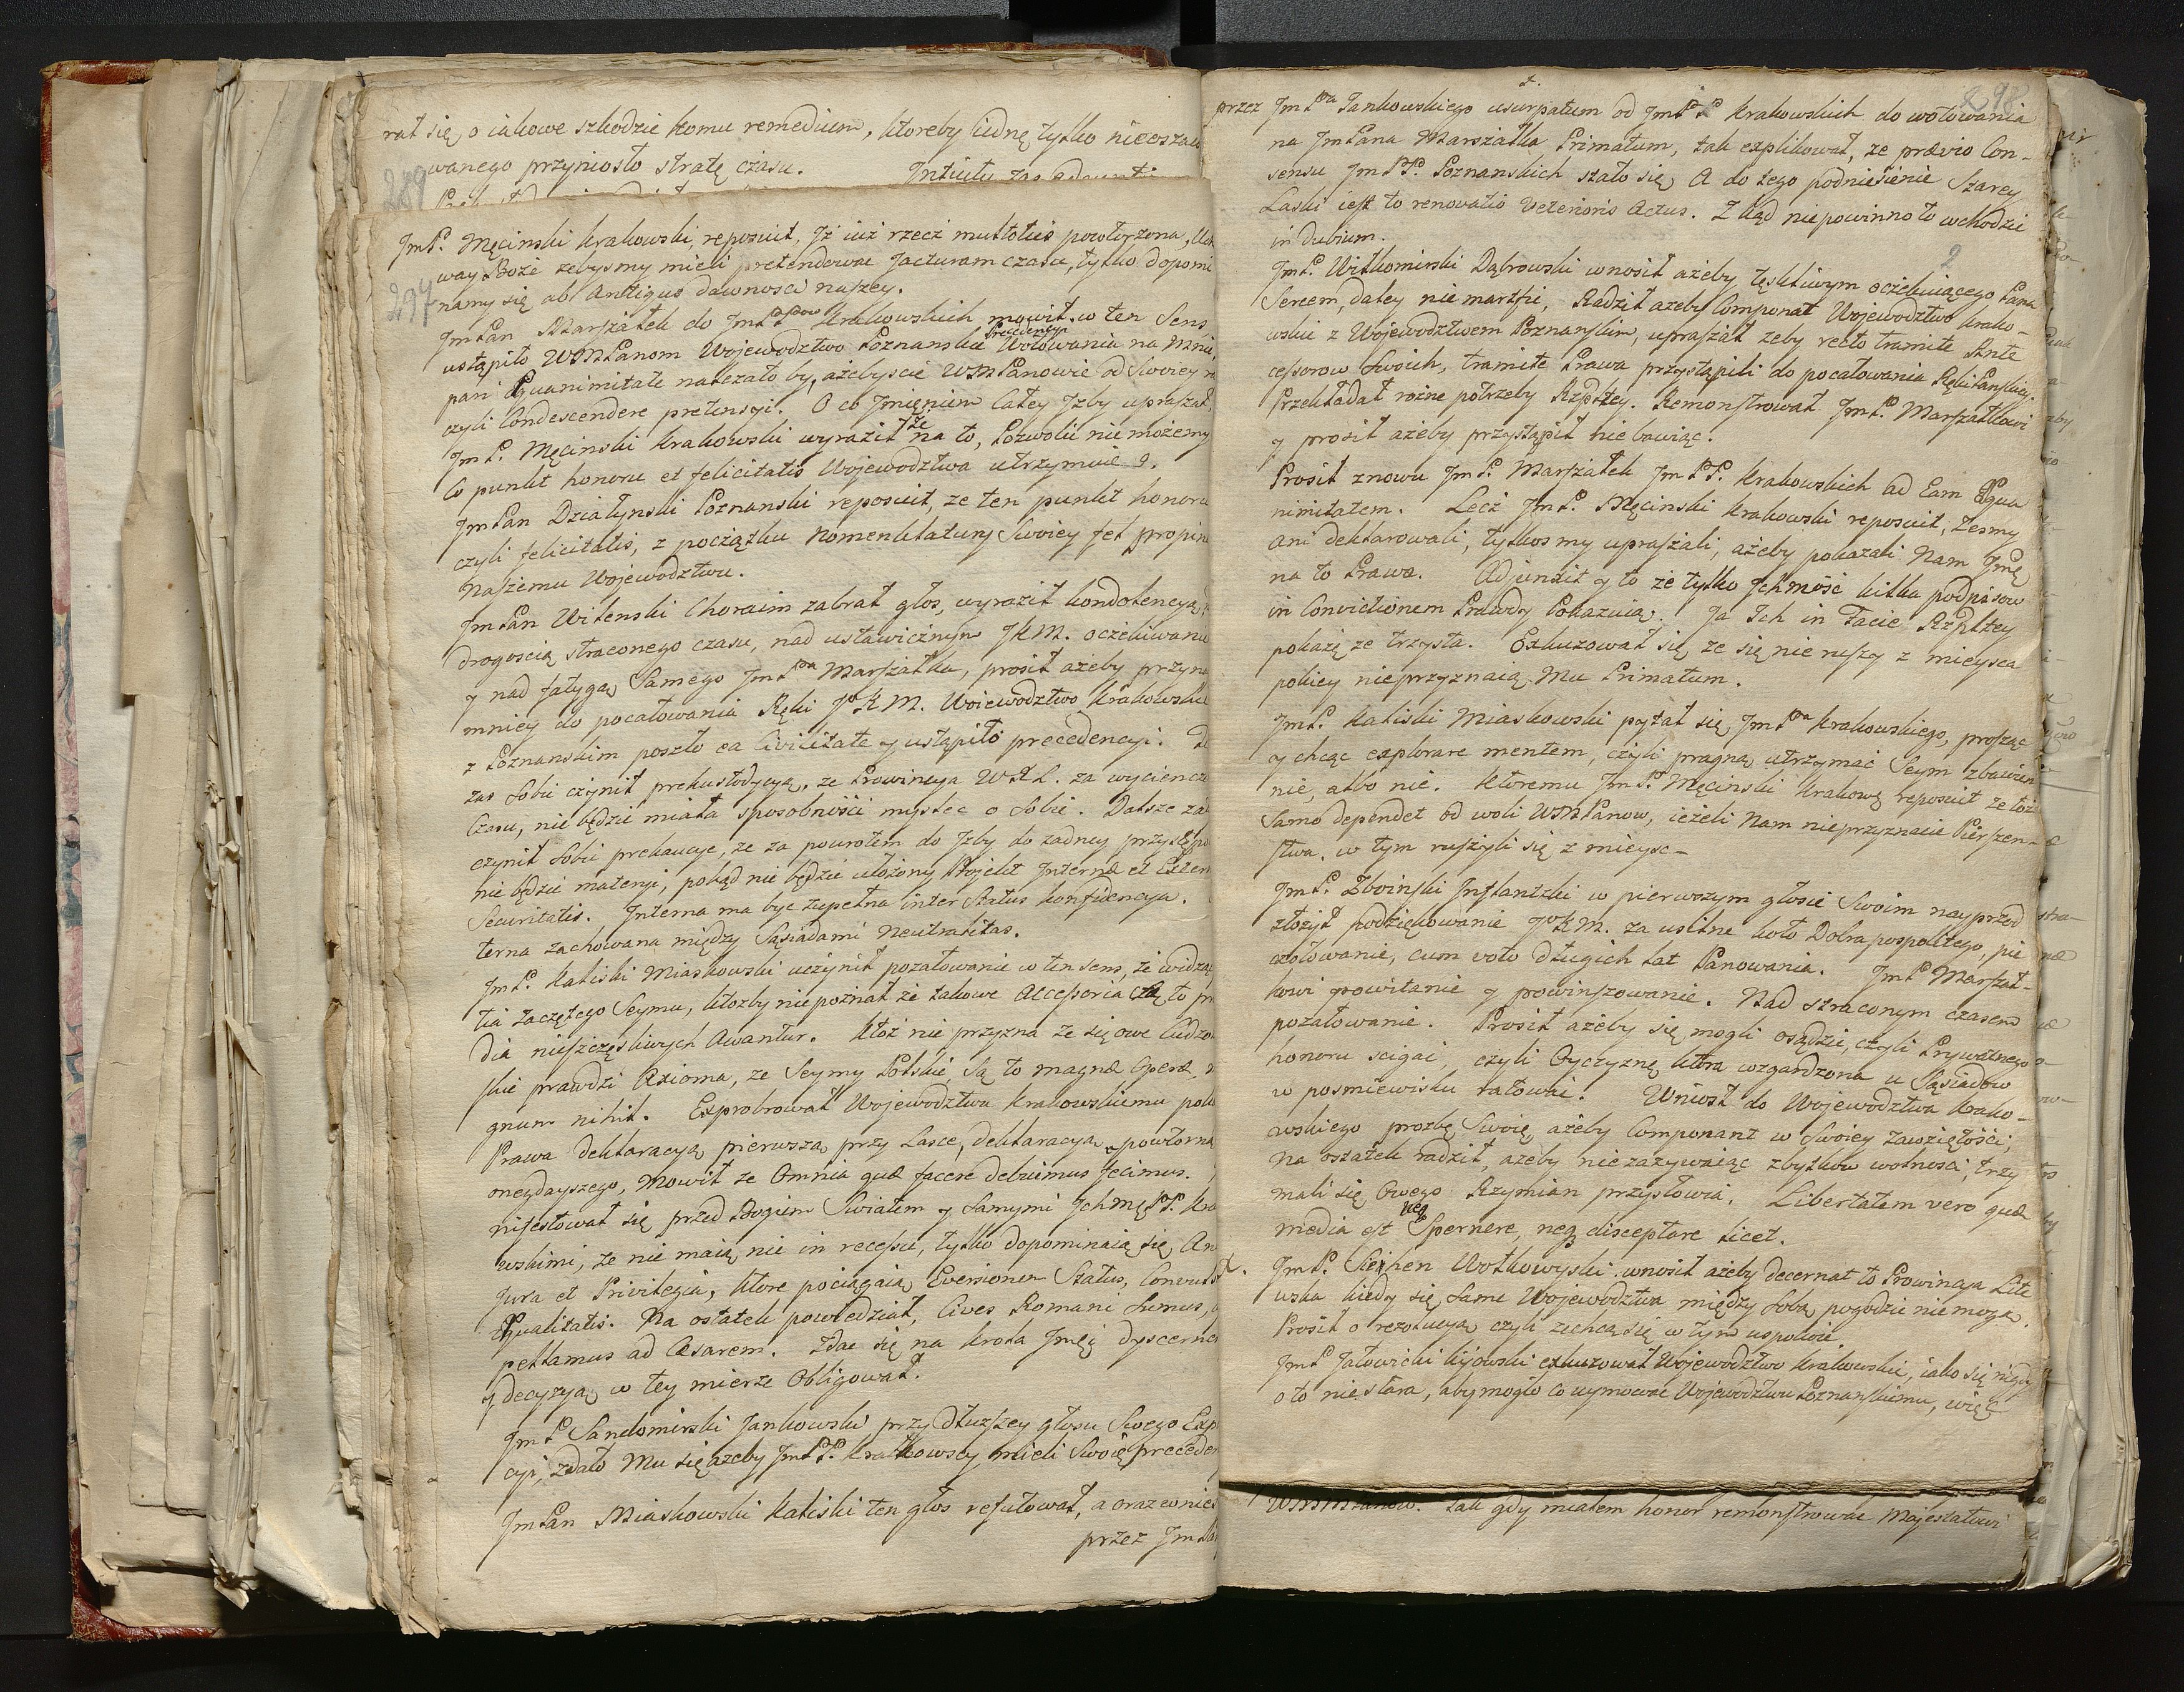 rał się o iakowe szkodzie komu remedium, ktoreby iednę tylko nieosza
wanego przyniosło stratę czasu. Intuitu zas
289
JmP. Męcinski Krakowski, reposuit, Jż iuż rzecz multoties powtorzona,
way Boże zebysmy mieli pretendować jacturam czasu, tylko dopomi
297
namy się ab Antiquo dawnosci naszey.
JmPan Marszałek do JmPPanow Krakowskich mowił w ten Sens
Precedencyą
ustąpiło WMPanom Wojewodztwo Poznanskie Wotowania na Mnie,
pari Æquanimitate należało by, ażebyscie WMPanowie od Swoiey
czyli Condescendere pretensyi. O co Jmieniem Całey Jzby upraszał.
że
JmP. Męcinski Krakowski wyraził na to, Pozwolić nie możemy
Co punkt honoru et felicitatis Wojewodztwa utrzymuie.
JmPan Działynski Poznanski reposuit, ze ten punkt honoru
czyli felicitatis, z początku Nomenklatury Swoiey jest propin
Naszemu Wojewodztwu.
JmPan Wilenski Choraim zabrał głos, wyraził kondolencyą
drogoscią straconego czasu, nad ustawicznym JKM. oczekiwaniu
y nad fatygą Samego JmPna Marszałka, prosił ażeby przyna
mniey do pocałowania Ręki JoKM. Woiewodztwo Krakowskie
z Poznanskim poszło ea Civilitate y ustąpiło precedencyi.
zas Sobie czynił prekustodycyą, ze Prowincya WXL. za wycienczo
Czasu, nie będzie miała sposobnosci myslec o Sobie. Dalsze za
czynił Sobie prekaucye, ze za powrotem do Jzby do zadney przystępo
nie będzie materyi, pokąd nie będzie ułożony Projekt Internæ et Extern
Securitatis. Interna ma byc zupełna inter Status konfidencya.
terna zachowana między Sąsiadami Neutralitas.
JmP. Kaliski Miaskowski uczynił pozałowanie w ten sens, że widzą
tia zaczętego Seymu, ktozby niepoznał że takowe Accessoria są to
dia nieszczęśliwych Awantur. Ktoż nie przyzna że się owe Cudzo
skie prawdzi Axioma, ze Seymy Polskie, Są to magnæ Operæ,
gnum nihil. Exprobrował Wojewodztwu Krakowskiemu
Prawa deklaracyą pierwszą przy Lasce, deklaracyą powtorną
onegdayszego, Mowił ze Omnia quæ facere debuimus fecimus.
nifestował się przed Bogiem Swiatem y Samymi JchmęPP. Kra
wskimi, ze nie maią nic in recessu, tylko dopominaią się An
Jura et Privilegia, ktore pociągaią Eversionem Status,
Æqualitatis. Na ostatek powiedział, Cives Romani Sumus,
pellamus ad Cæsarem. Zdac się na Krola Jmęi dyscerne
y decyzyą w tey mierze Obligował.
JmP Sandomirski Jankowski przy dłuzszey głosu Swego Exp
cyi, zdało Mu się azeby JmPP. Krakowscy mieli Swoię preceden
JmPan Miaskowski Kaliski ten głos refutował, a oraz
przez JmPa
298
przez JmPna Jankowskiego usurpatum od JmPP Krakowskich do wotowania
na JmPana Marszałka Primatum, tak explikował, ze prævio Con-
sensu JmPP. Poznanskich stało się, A do tego podniesienie Starey
Laski iest to renovatio Veterioris Actus. Z kąd niepowinno to wchodzic
in dubium.
2
JmP. Witkomirski Dąbrowski wnosił ażeby tęskliwym oczekuiącego Pana
Sercem, daley nie martwić, Radził azeby Componat Wojewodztwo Krako-
wskie z Wojewodztwem Poznanskim, upraszał zeby recto tramite Ante
cessorow Swoich, tramite Prawa przystąpili do pocałowania Ręki Pańskiey.
Przekładał rożne potrzeby Rzpltey. Remonstrował JmP Marszałkowi
y prosił ażeby przystąpił nie bawiąc.
Prosił znowu JmP. Marszałek JmPP. Krakowskich ad Eam Æqua
nimitatem. Lecz JmP. Męcinski Krakowski reposuit, Zesmy
ani deklarowali, tylkosmy upraszali, ażeby pokazali Nam Jmę
na to Prawo. Adjunxit y to że tylko Jchmość kilka podpisow
in Convictionem Prawdy Pokazuią. Ja Jch in Facie Rzpltey
pokażę ze trzysta. Exkuzował się ze się nie ruszy z mieysca
pokiey nieprzyznaią Mu Primatum.
JmP. Kaliski Miaskowski pytał się JmPna Krakowskiego, prosząc
y chcąc explorare mentem, czyli pragną utrzymać Seym zbawien
nie, albo nie. Ktoremu JmP. Męcinski Krakowę reposuit ze toż
Samo dependet od woli WMPanow, ieżeli Nam nieprzyznacie Pierszen-
stwa. w tym ruszyli się z mieysc-
JmP. Zboinski Inflantzki w pierwszym głosie Swoim nayprzod
złożył podziękowanie JoKM. za usilne koło Dobra pospolitego, pie
czołowanie, cum voto długich lat Panowania. JmP Marszał-
kowi powitanie y powinszowanie. Nad straconym czasem
pozałowanie. Prosił ażeby się mogli osądzic, czyli Prywatnego
honoru scigać, czyli Oyczyznę ktora wzgardzona u Sąsiadow
w posmiewisku ratować. Wniosł do Wojewodztwa Krako-
wskiego prozbę Swoię, ażeby Componant w Swoiey zawziętości,
na ostatek radził, azeby nie zazywaiąc zbytkow wolnosci, trzy
mali się Owego Rzymian przysłowia. Libertatem vero quæ
neq
media est Spernere, neq disceptare licet.
JmP. Wołkowyski wnosił ażeby decernat to Prowincya Lite
wska kiedy się Same Wojewodztwa między Sobą pogodzic nie mogą.
Prosił o rezolucyą czyli zechcą się w tym uspokoic
JmP Jałowicki Kijowski exkuzował Wojewodztwo Krakowskie, iako się nigdy
o to nie stara, aby mogło co uymowac Wojewodztwu Poznanskiemu, więc
WMMPanow. tak gdy miałem honor remonstrowac Majestatowi